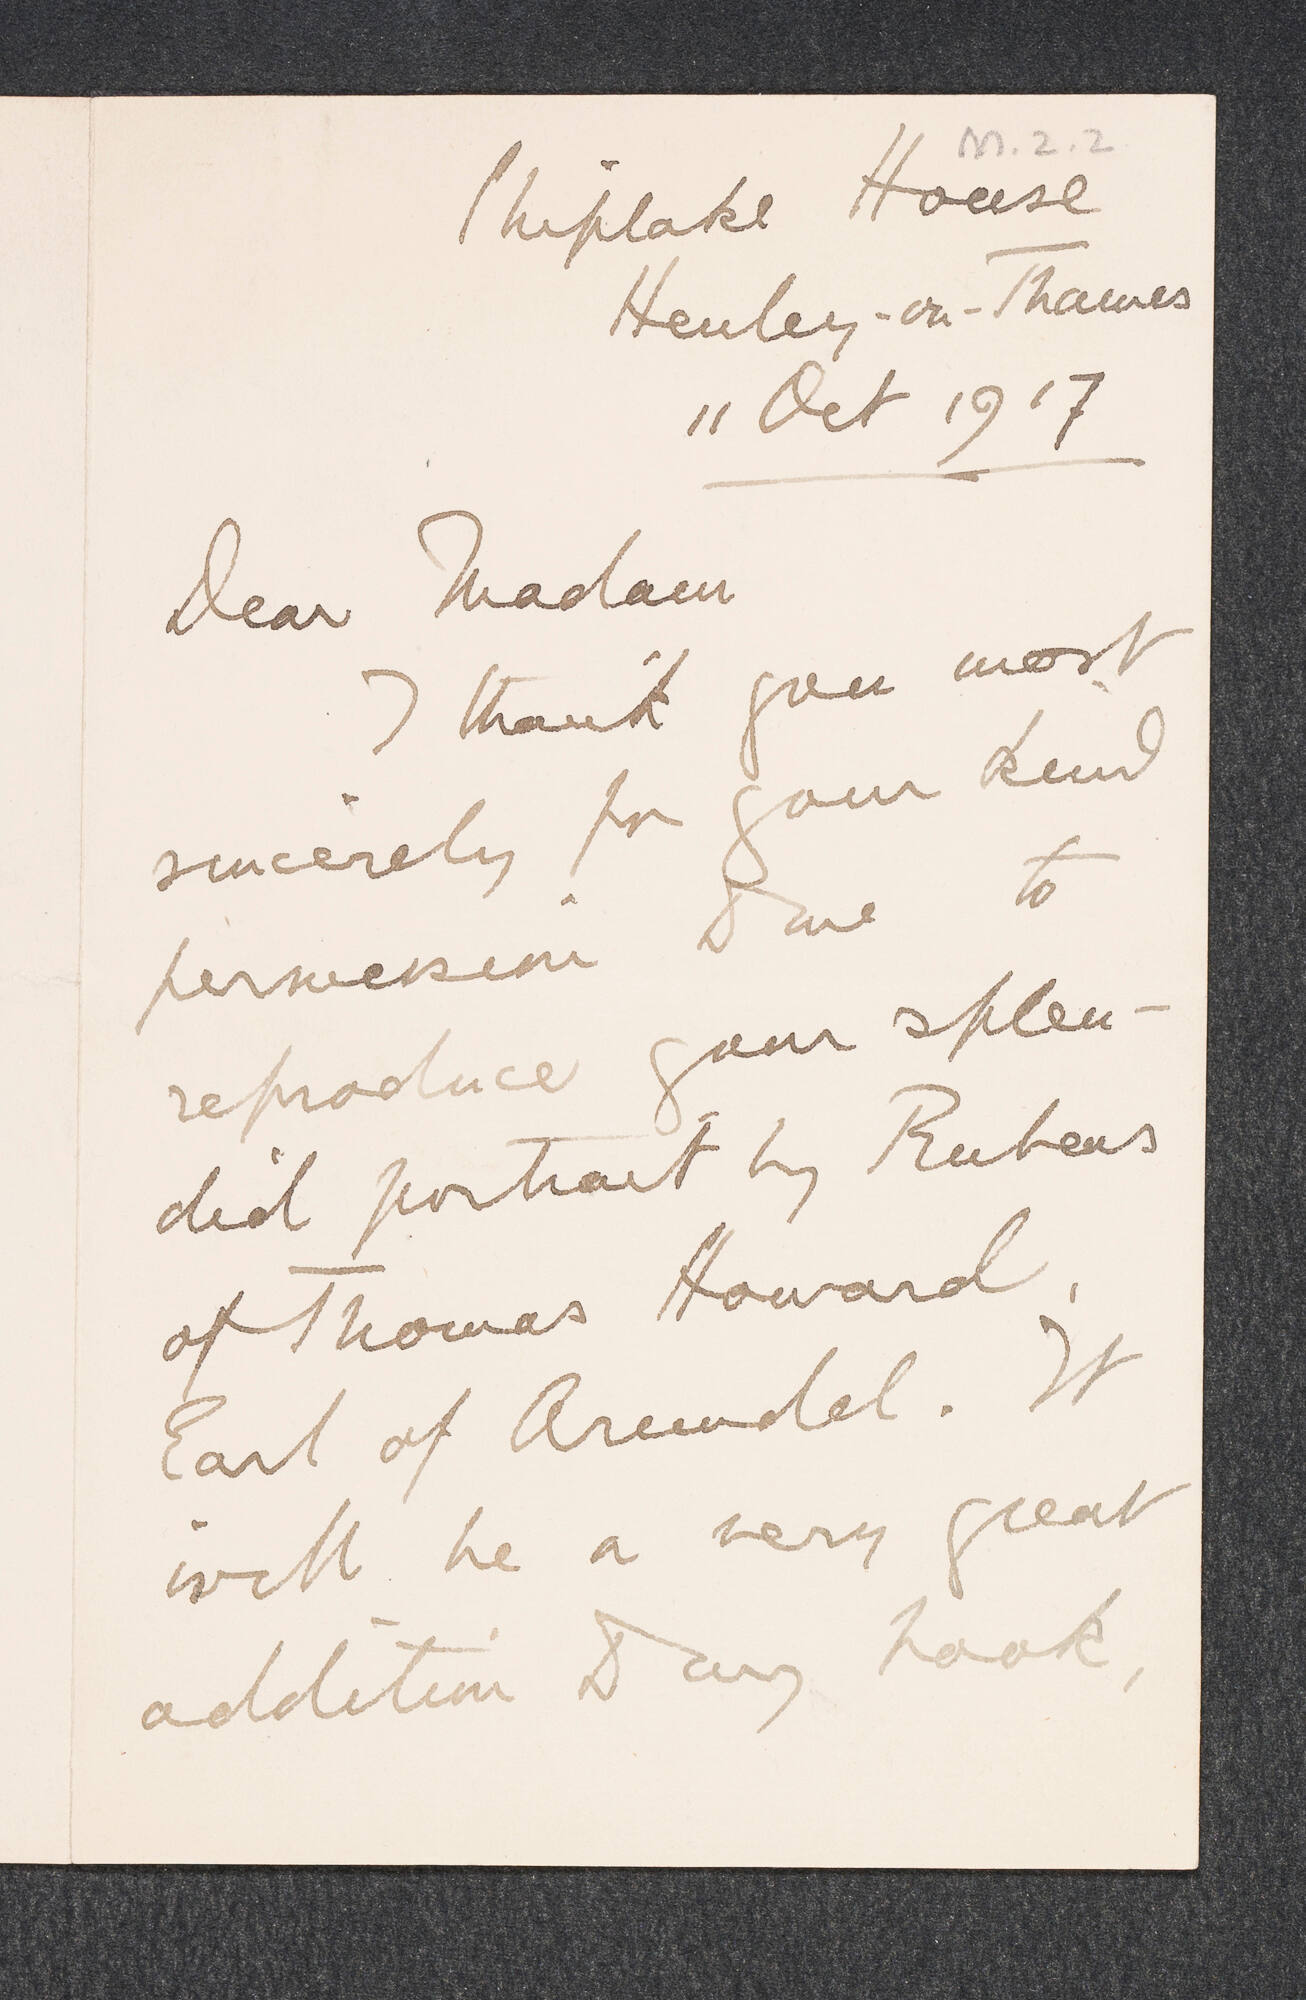 M.2.2
Shiplake House
Henley-on-Thames
11 Oct 1917
Dear Madam
I thank you most
sincerely for your kind
permission to me to
reproduce your splen-
did portrait by Rubens
of Thomas Howard,
Earl of Arundel. It
will be a very great
addition to my book,